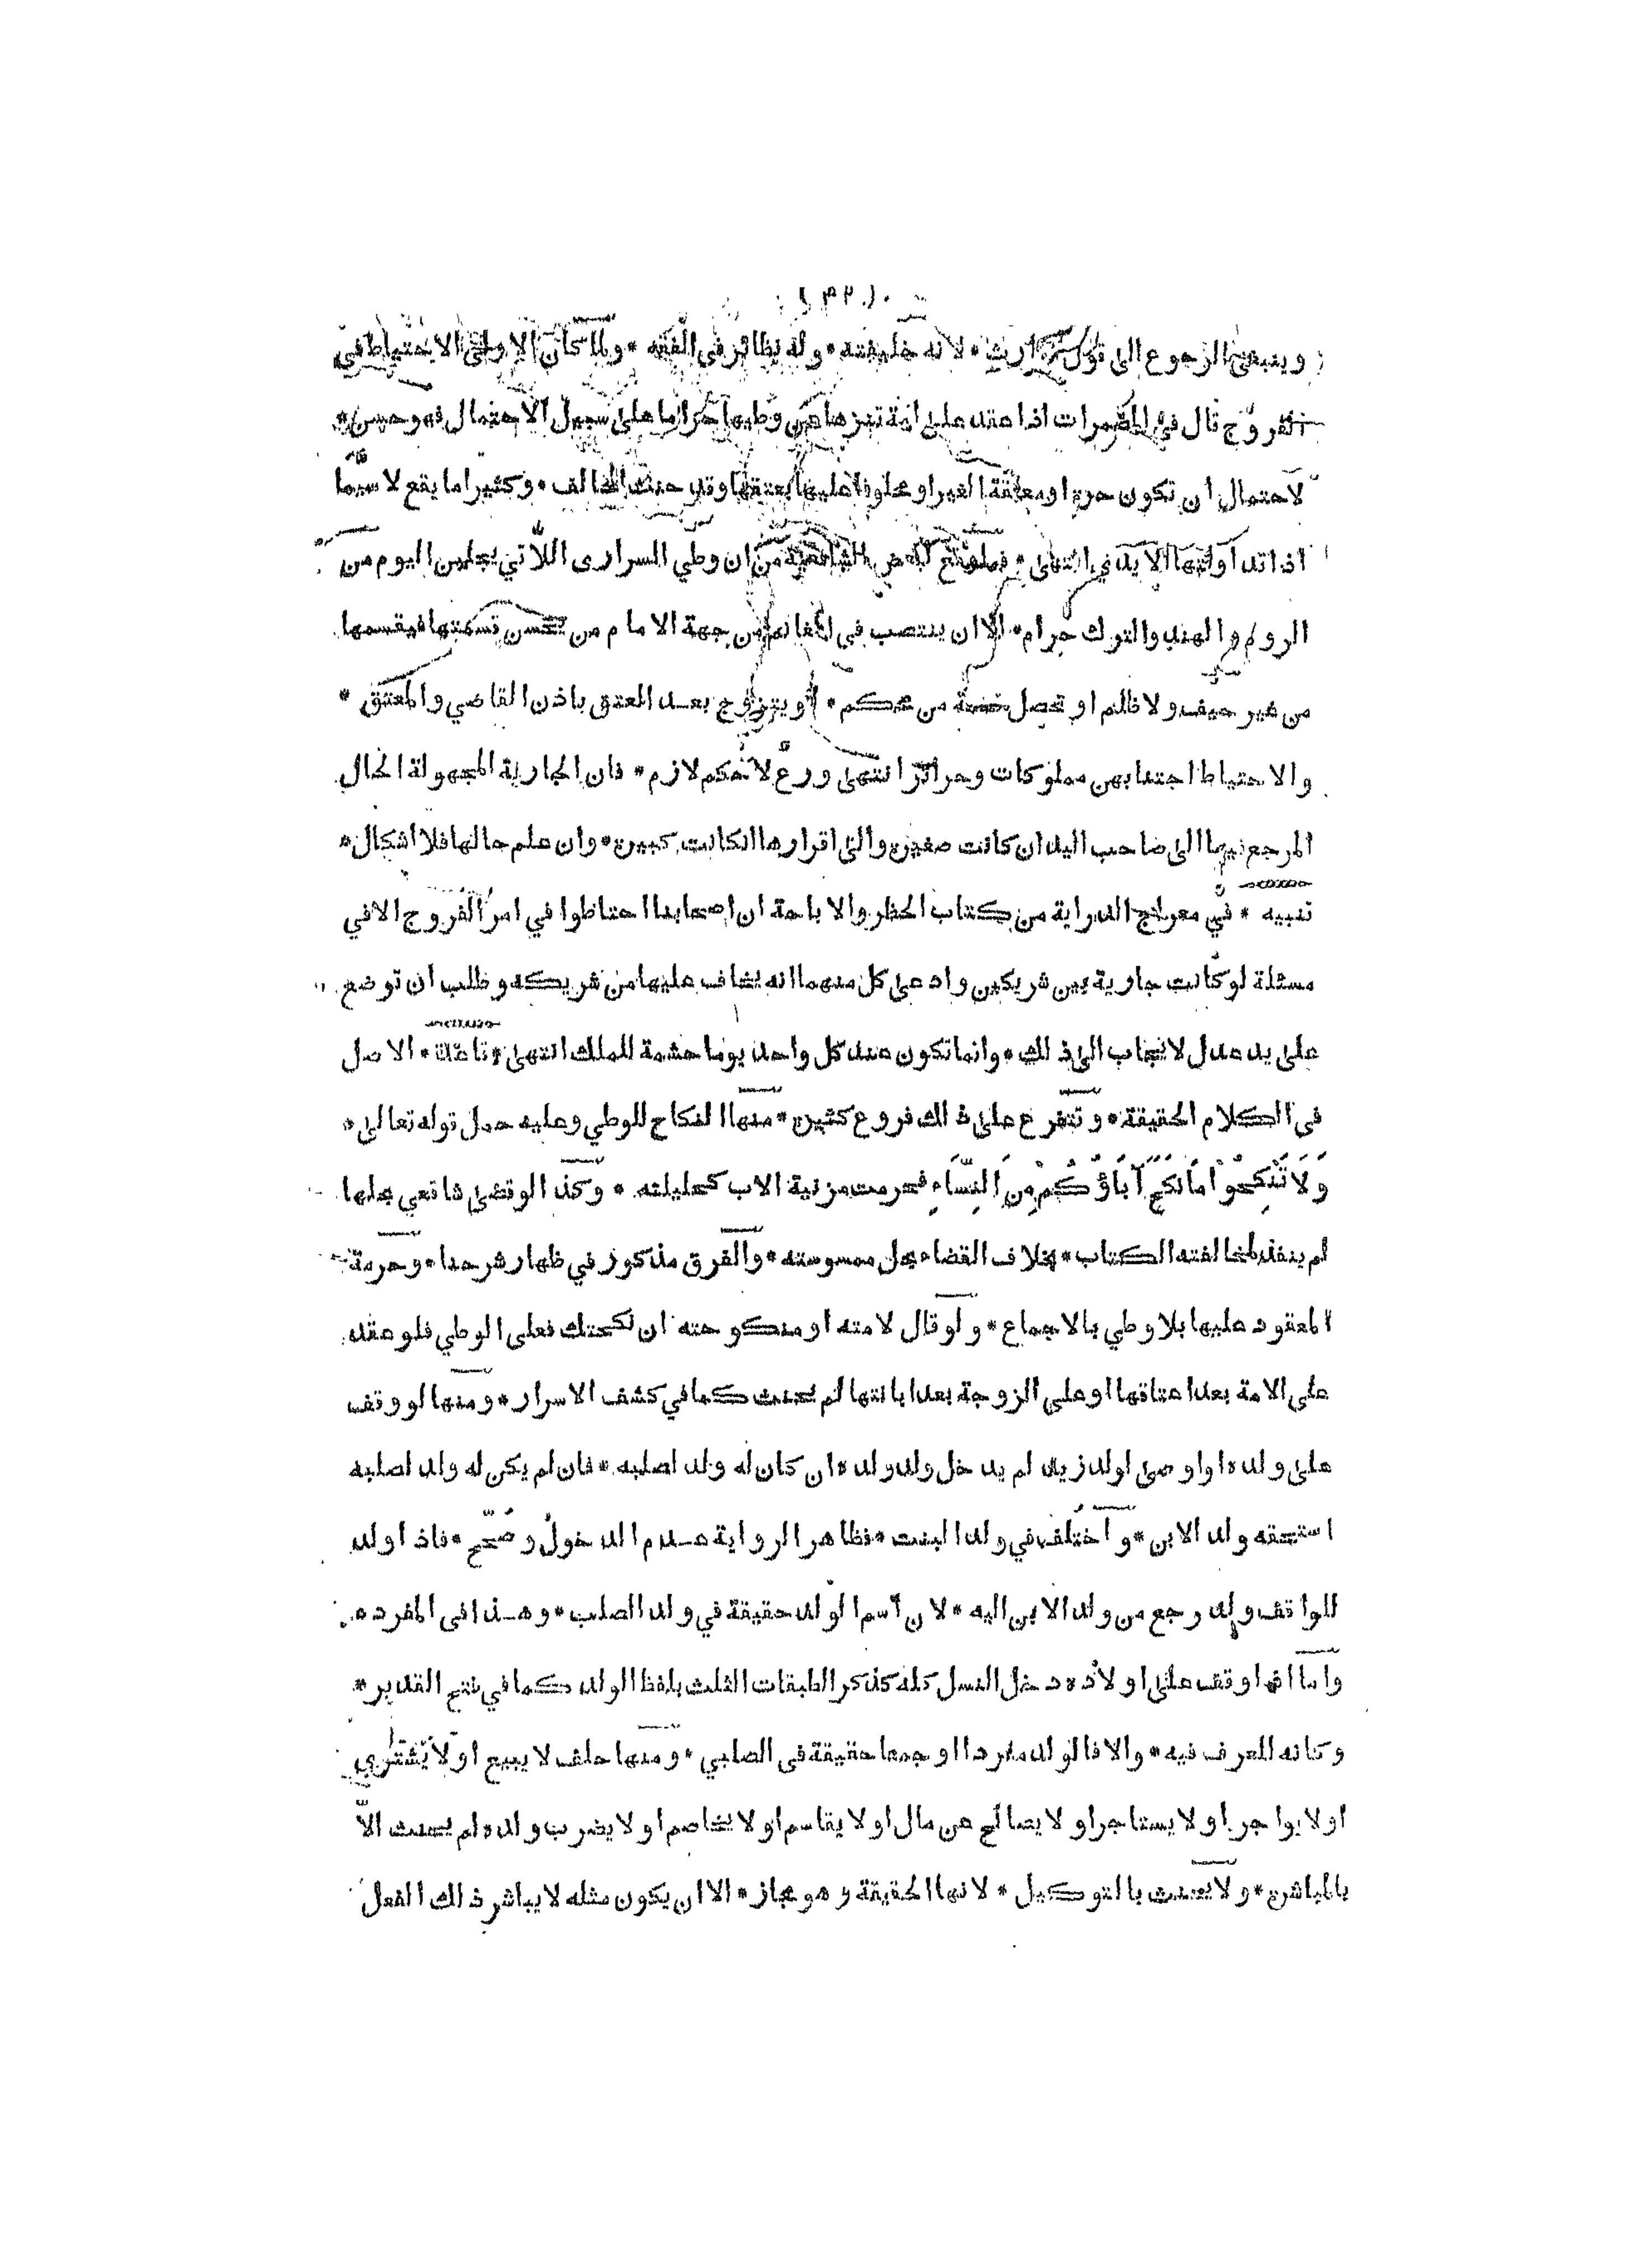 وينبغي الرجوع الى قول الوارث * لانه خليفته * وله نظائر في الفقه * ولما كان الاولى الاحتياط في
الفروج قال في المضمرات اذا عقد على امة تنزها عن وطيها حراما على سبيل الاحتمال فهو حسن *
لاحتمال ان تكون حرة او معتقة الغير او محلوفا عليها بعتقها وقد حنث الحالف * وكثيرا ما يقع لا سيّما
اذا تداولتها الايدي انتهى * فما وقع لبعض الشافعية من ان وطي السرارى اللاّتي يجلبن اليوم من
الروم والهند والترك حرام * الا ان ينتصب في المغانم من جهة الامام من يحسن قسمتها فيقسمها
من غير حيف ولا ظلم او تحصل قسمة من محكم * او يتزوج بعد العتق باذن القاضي والمعتق *
والاحتياط اجتنابهن مملوكات وحرائر انتهى ورع لا حكم لازم * فان الجارية المجهولة الحال
المرجع فيها الى صاحب اليد ان كانت صغيرة والى اقرارها انكانت كبيرة * وان علم حالها فلا اشكال *
تنبيه * في معراج الدراية من كتاب الحظر والاباحة ان اصحابنا احتاطوا في امر الفروج الا في
مسئلة لو كانت جارية بين شريكين وادعى كل منهما انه يخاف عليها من شريكه وطلب ان توضع
على يد عدل لا يجاب الى ذلك * وانما تكون عند كل واحد يوما حشمة للملك انتهى * قاعدة * الاصل
في الكلام الحقيقة * وتتفرع على ذلك فروع كثيرة * منها النكاح للوطي وعليه حمل قوله تعالى *
وَلَا تَنْكِحُوْا مَا نَكَحَ آبَاؤُكُمْ مِنَ النِّسَاءِ فحرمت مزنية الاب كحليلته * وكذا لو قضى شافعي بحلها
لم ينفذ لمخالفته الكتاب * بخلاف القضاء بحل ممسوسته * والفرق مذكور في ظهار شرحنا * وحرمة
المعقود عليها بلا وطي بالاجماع * ولو قال لامته او منكوحته ان نكحتك فعلى الوطي فلو عقد
على الامة بعد اعتاقها او على الزوجة بعد ابانتها لم يحنث كما في كشف الاسرار * ومنها لو وقف
على ولده او اوصى لولد زيد لم يدخل ولد ولده ان كان له ولد لصلبه * فان لم يكن له ولد لصلبه
استحقه ولد الابن * واختلف في ولد البنت * فظاهر الرواية عدم الدخول وصحّح * فاذا ولد
للواقف ولد رجع من ولد الابن اليه * لان اسم الولد حقيقة في ولد الصلب * وهذا في المفرد *
واما اذا وقف على اولاده دخل النسل كله كذكر الطبقات الثلث بلفظ الولد كما في فتح القدير *
وكانه للعرف فيه * والا فالولد مفردا او جمعا حقيقة في الصلبي * ومنها حلف لا يبيع او لا يشتري
او لا يواجر او لا يستاجر او لا يصالح عن مال او لا يقاسم او لا يخاصم او لا يضرب ولده لم يحنث الاّ
بالمباشرة * ولا يحنث بالتوكيل * لانها الحقيقة وهو مجاز * الا ان يكون مثله لا يباشر ذلك الفعل